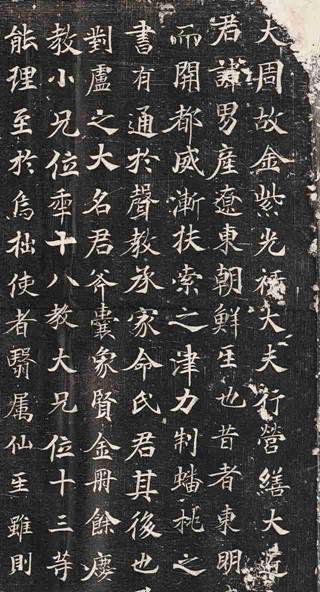 大周故金紫光祿大夫行營繕大匠
君諱男產遼東朝鮮𤯔也昔者東明
而開都威漸扶索之津力制蟠桃之
書有通於聲教承家命氏君其後也
對盧之大名君斧囊象賢金冊餘慶
教小兄位𠡦十八教大兄位十三等
能理至於烏拙使者翳属仙𤯔雖則